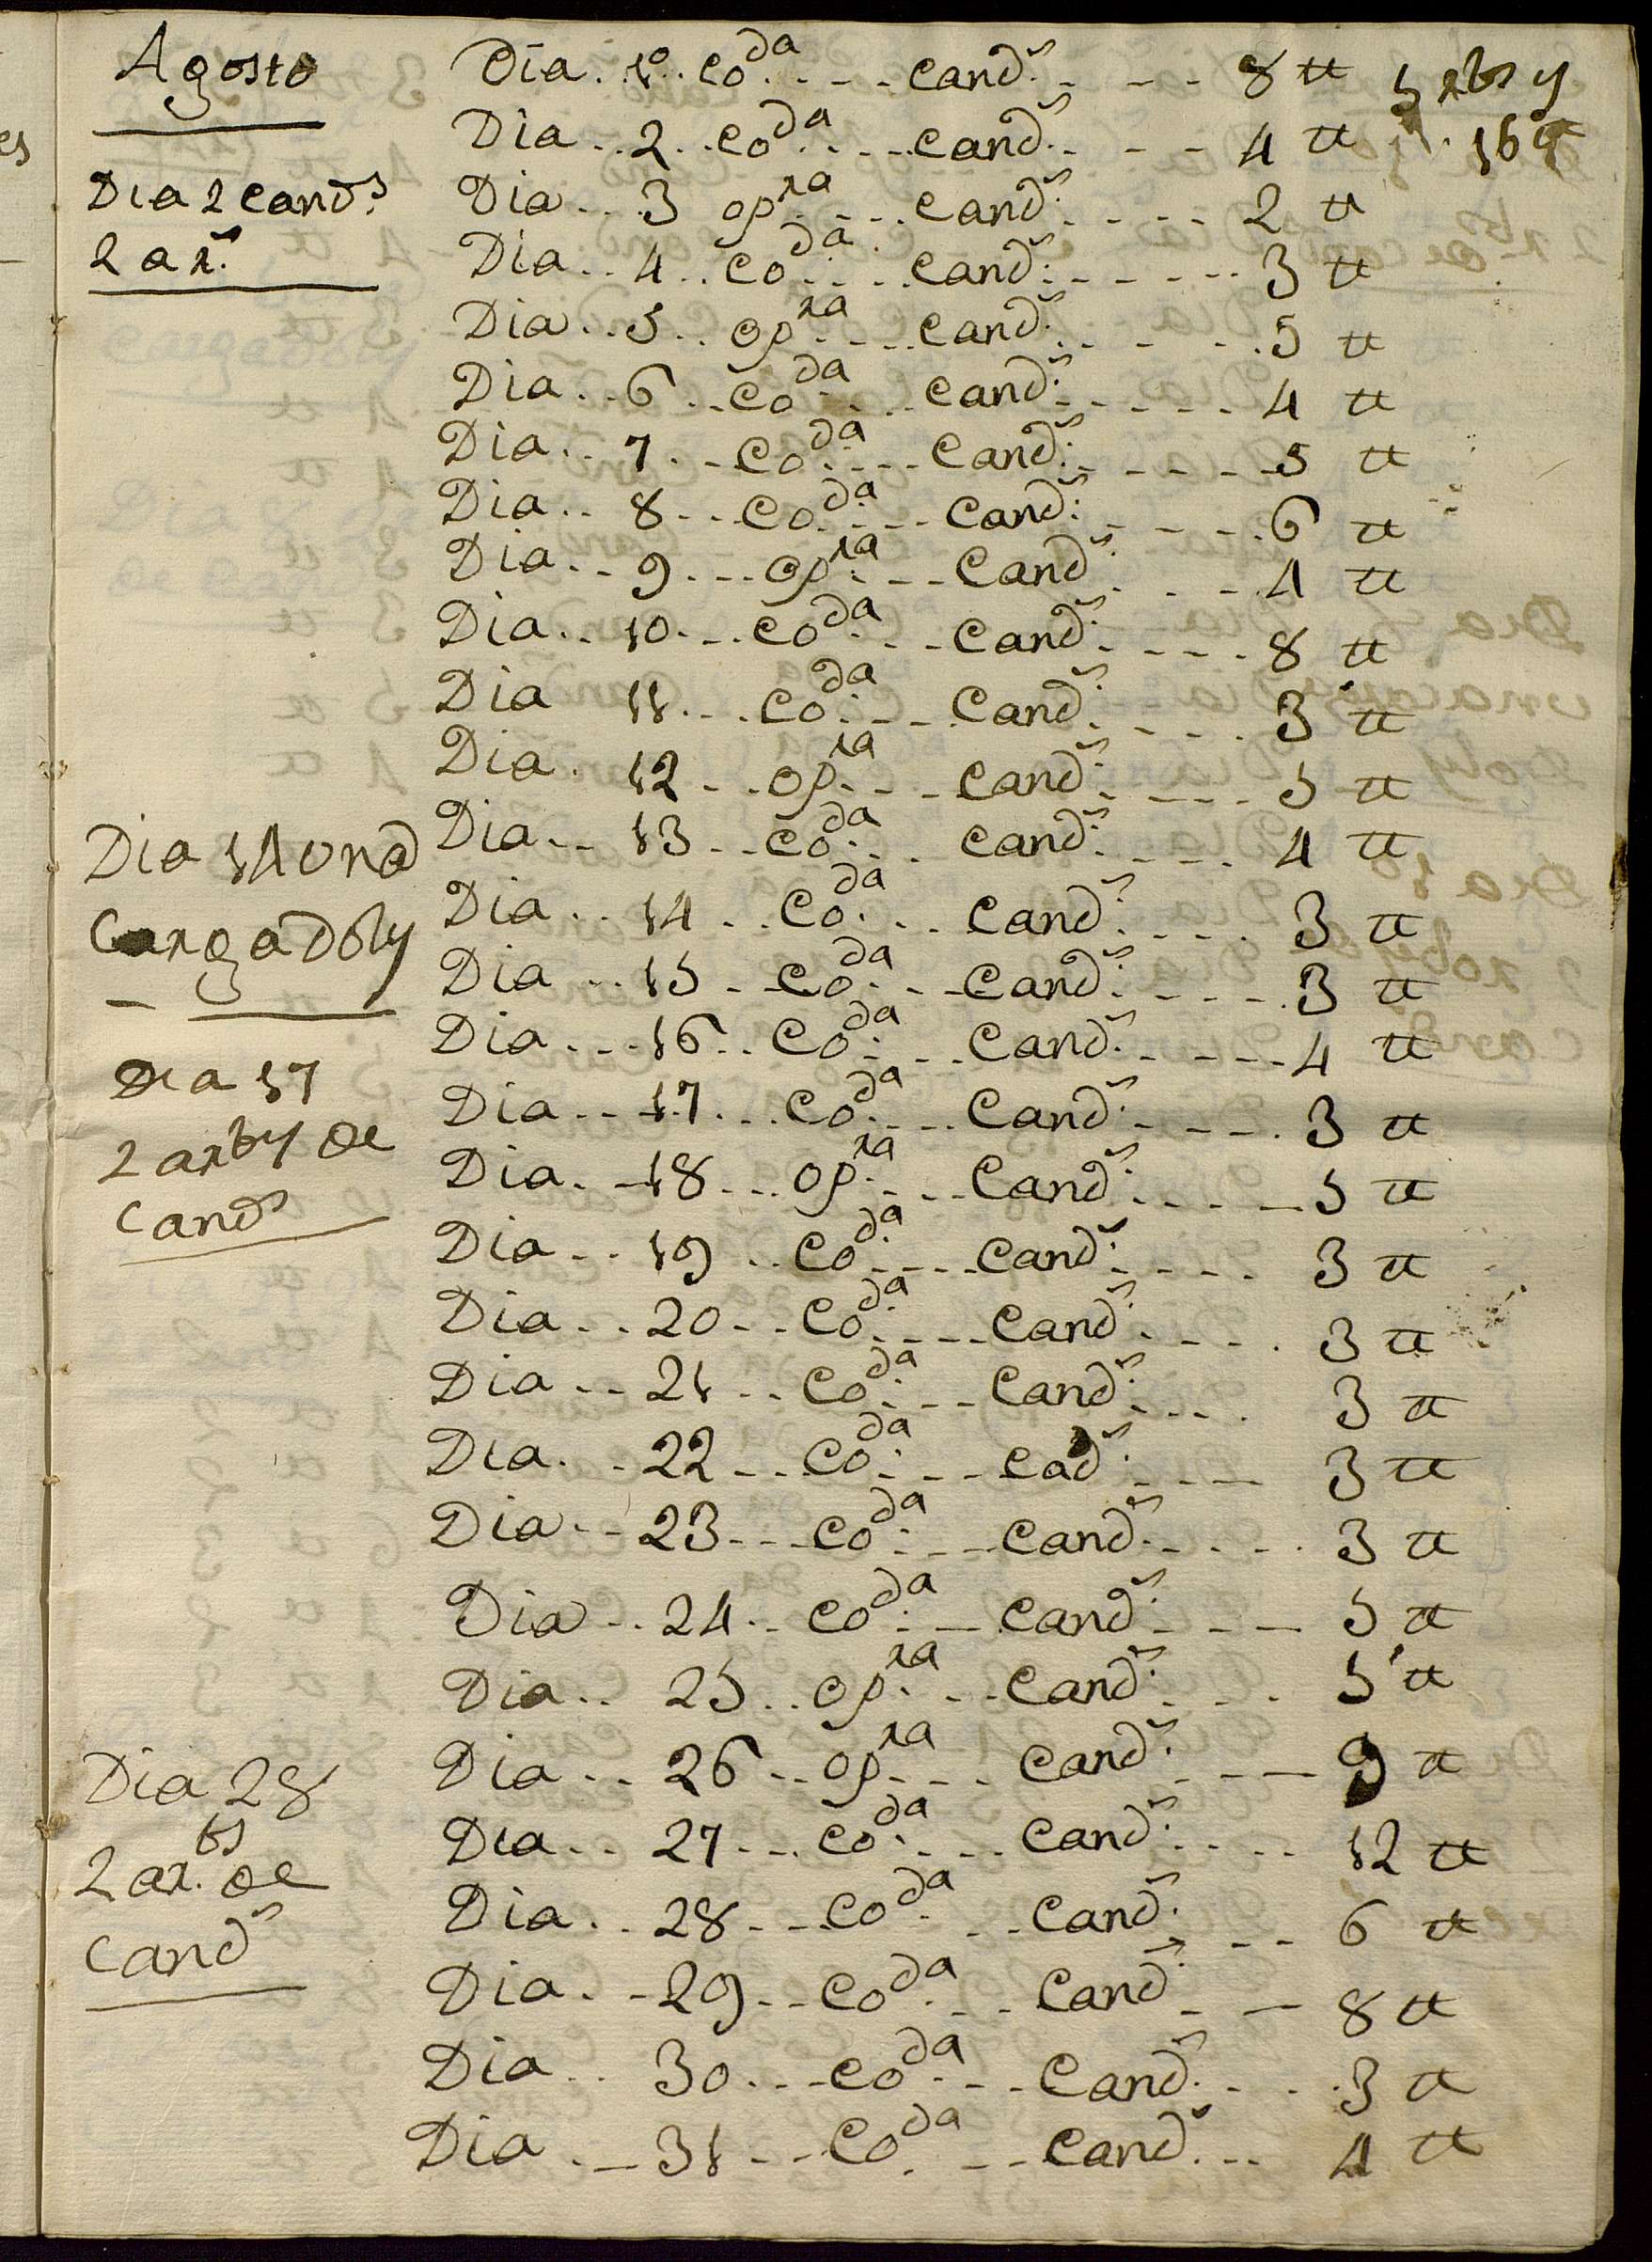 Agosto
Dia 2 cand.s
2 ar.s
Dia 14 una
Carga D oly
Dia 17
2 arbs y de
Cands
Dia 28
2 ar.bs de
Cands
Dia. 1º. Co.da --- Cand.s --- 8 ℔ 5 rbs y
Dia.. 2.. Co.da ... Cand.s --- 4 ℔ 16 ℔
Dia.. 3 op.ra --- Cand.s ---- 2 ℔
Dia.. 4.. Co.da .... Cand.s ----- 3 ℔
Dia.. 5.. op.ra .... Cand.s ---- 5 ℔
Dia.. 6.. Co.da .... Cand.s ----- 4 ℔
Dia.. 7.. Co.da .... Cand.s ----- 5 ℔
Dia.. 8.. Co.da .... Cand.s ---- 6 ℔
Dia.. 9... op.ra --- Cand.s --- 4 ℔
Dia.. 10... Co.da --- Cand.s ---- 8 ℔
Dia 11... Co.da --- Cand.s ---- 3 ℔
Dia. 12.. op.ra --- Cand.s ---- 5 ℔
Dia.. 13.. Co.da ... Cand.s ---- 4 ℔
Dia.. 14.. Co.da ... Cand.s ---- 3 ℔
Dia.. 15.. Co.da --- Cand.s ---- 3 ℔
Dia... 16.. Co.da --- Cand.s ----- 4 ℔
Dia.. 17... Co.da --- Cand.s ---- 3 ℔
Dia.. 18... op.ra --- Cand.s ---- 5 ℔
Dia.. 19.. Co.da ---- Cand.s ---- 3 ℔
Dia.. 20.. Co.da ---- Cand.s ---- 3 ℔
Dia.. 21.. Co.da --- Cand.s ---- 3 ℔
Dia.. 22.. Co.da --- Cad.s --- 3 ℔
Dia.. 23... Co.da --- Cand.s ---- 3 ℔
Dia.. 24.. Co.da --- Cand.s --- 5 ℔
Dia.. 25.. op.ra --- Cand.s --- 5 ℔
Dia.. 26.. op.ra --- Cand.s --- 9 ℔
Dia.. 27... Co.da --- Cand.s ---- 12 ℔
Dia.. 28.. Co.da -- Cand.s --- 6 ℔
Dia.. 29.. Co.da --- Cand.s -- 8 ℔
Dia.. 30... Co.da --- Cand.s --- 3 ℔
Dia.. 31.. Co.da --- Cand.s -- 4 ℔